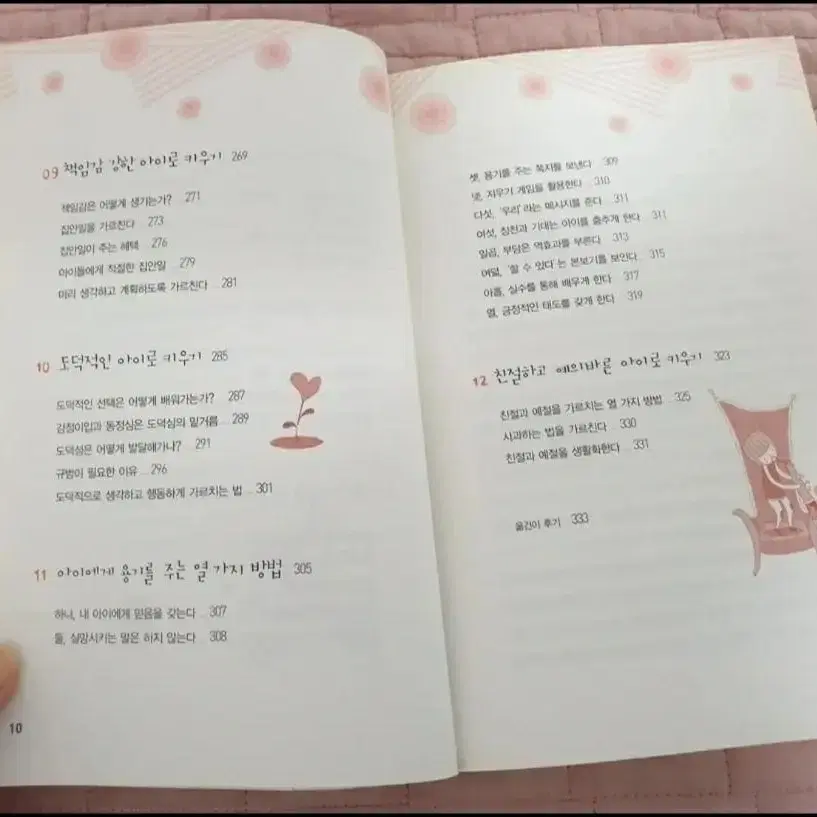 09 책임감 강한 아이로 키우기 269
책임감은 어떻게 생기는가? 271
집안일을 가르친다 273
집안일이 주는 혜택 276
아이들에게 적절한 집안일 279
미리 생각하고 계획하도록 가르친다 281
10 도덕적인 아이로 키우기 285
도덕적인 선택은 어떻게 배워가는가? 287
감정이입과 동정심은 도덕심의 밑거름 289
도덕성은 어떻게 발달해가나? 291
규범이 필요한 이유 296
도덕적으로 생각하고 행동하게 가르치는 법 301
11 아이에게 용기를 주는 열 가지 방법 305
하나, 내 아이에게 믿음을 갖는다 307
둘, 실망시키는 말은 하지 않는다 308
10
셋, 용기를 주는 쪽지를 보낸다 309
넷, 지우기 게임을 활용한다 310
다섯, '우리'라는 메시지를 준다 311
여섯, 칭찬과 기대는 아이를 춤추게 한다 311
일곱, 부담은 역효과를 부른다 313
여덟, '할 수 있다'는 본보기를 보인다 315
아홉, 실수를 통해 배우게 한다 317
열, 긍정적인 태도를 갖게 한다 319
12 친절하고 예의바른 아이로 키우기 323
친절과 예절을 가르치는 열 가지 방법 325
사과하는 법을 가르친다 330
친절과 예절을 생활화한다 331
옮긴이 후기 333